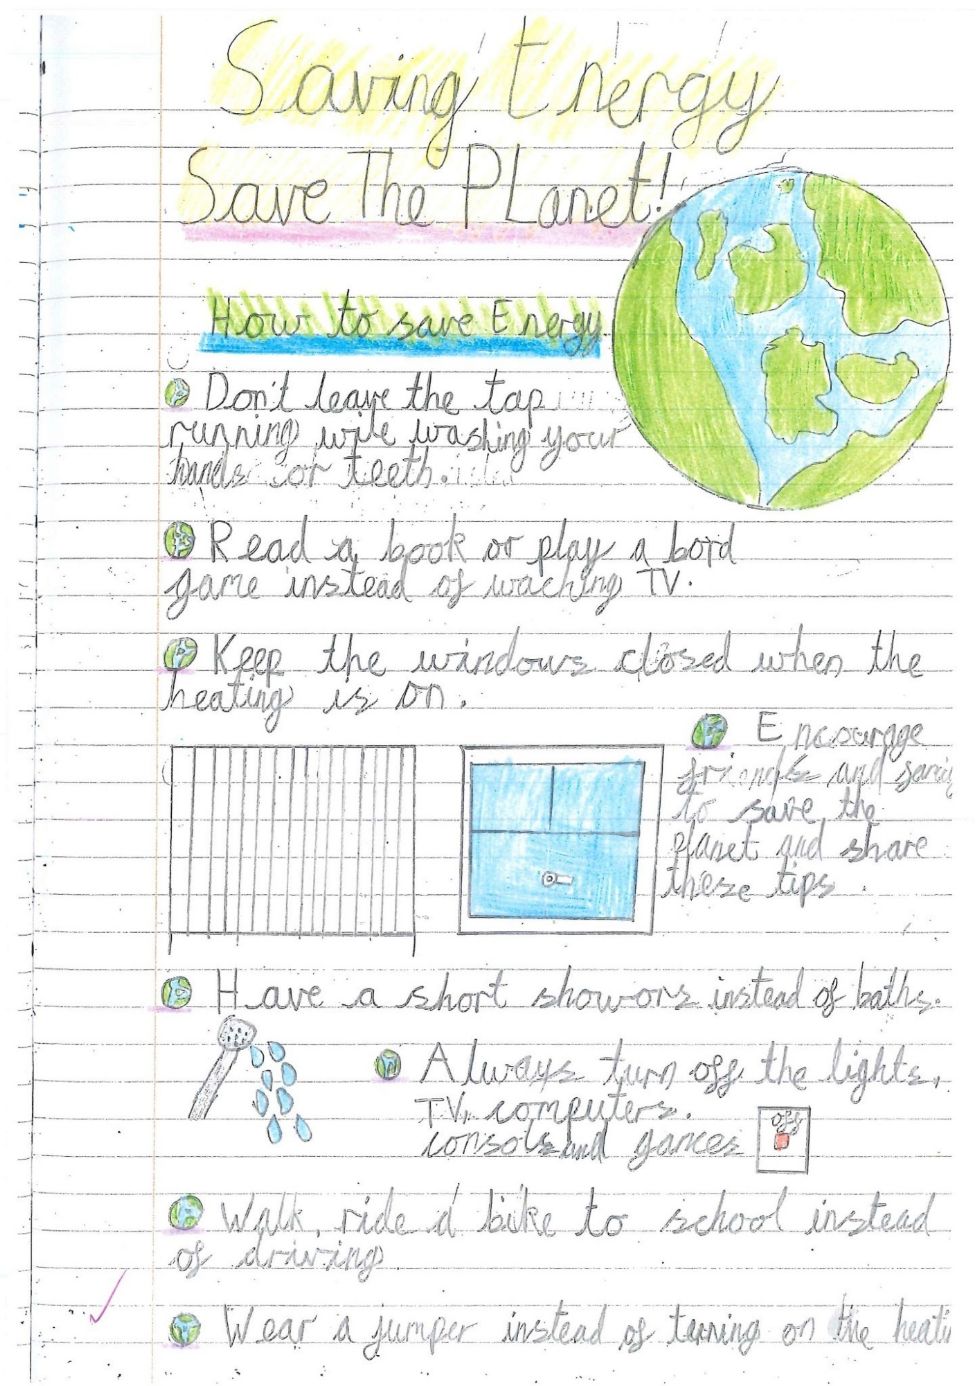 Saving Energy
Save The PLanet!
How to save Energy
Don't leave the tap
running wile washing your
hands or teeth.
Read a book or play a bord
game instead of waching TV.
Keep the windows closed when the
heating is on.
Encourage
friends and
to save the
planet and share
these tips
Have a short showors instead of baths.
Always turn off the lights,
TV, computers.
consols and games
off
Walk, ride a bike to school instead
of driving
Wear a jumper instead of terning on the heati